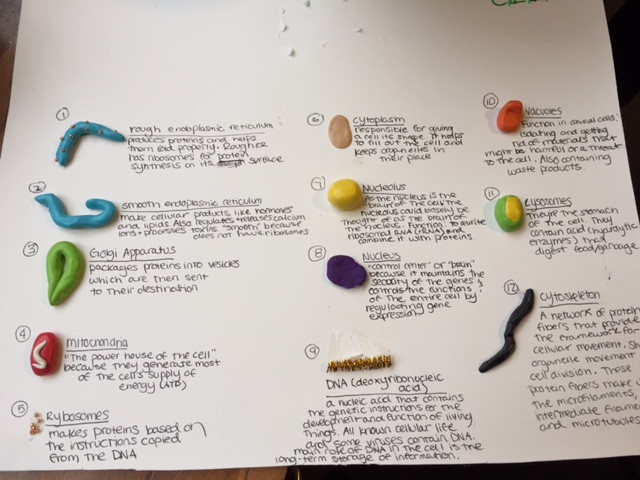 ①
rough endoplasmic reticulum
produces proteins and helps
them fold properly. Rougher
has ribosomes for protein
synthesis on its surface
②
smooth endoplasmic reticulum
make cellular products like hormones
and lipids. Also regulates + releases calcium
ions + processes toxins. "smooth" because
does not have ribosomes
③
Golgi Apparatus
packages proteins into vesicles
which are then sent
to their destination
④
mitochondria
"The power house of the cell"
because they generate most
of the cell's supply of
energy (ATP)
⑤
Rybosomes
makes proteins based on
the instructions copied
from the DNA
⑥
cytoplasm
responsible for giving
a cell its shape. It helps
to fill out the cell and
keeps organelles in
their place
⑦
Nucleolus
As the nucleus is the
brain of the cell the
nucleolus could loosely be
thought of as the brain of
the nucleus. Function: to write
ribosomal RNA (rRNA) and
combine it with proteins
⑧
Nucleus
"control center" or "brain"
because it maintains the
security of the genes &
controls the functions
of the entire cell by
regulating gene
expression
⑨
DNA (deoxyribonucleic
acid)
a nucleic acid that contains
the genetic instructions for the
development and function of living
things. All known cellular life
and some viruses contain DNA.
main role of DNA in the cell is the
long-term storage of information.
⑩
Vacuoles
Function in animal cells:
isolating and getting
rid of materials that
might be harmful or a threat
to the cell. Also containing
waste products.
⑪
Lysosomes
They're the stomach
of the cell. They
contain acid (hydrolytic
enzymes) that
digest food/garbage
⑫
cytoskeleton
A network of protein
fibers that provide
the framework for
cellular movement.
organelle movement
cell division. These
protein fibers make
the microfilaments,
intermediate
and microtubules